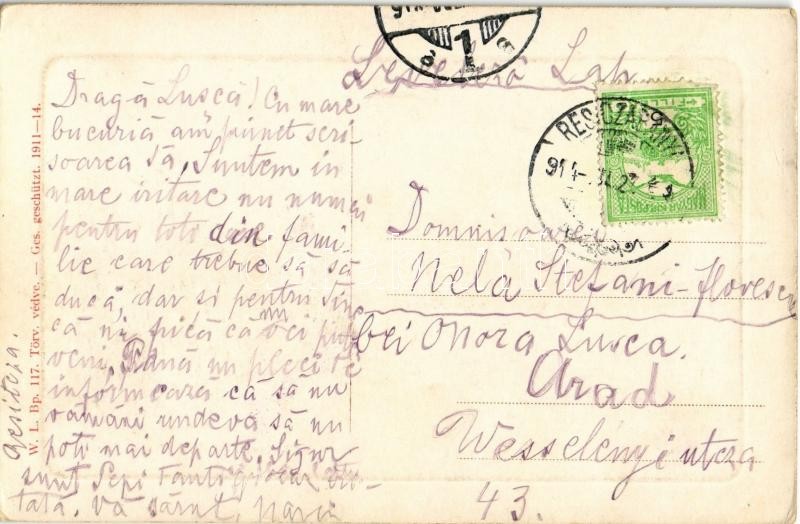 Dragă Lusca! Cu mare
bucuriă am primet scri-
soarea Ta, Suntem in
mare iritare nu numai
pentru toti din fami-
lie care trebue să să
ducă, dar si pentru tine
că ni frică că vei
veni. Până nu pleci te
informează că să nu
rămâni undeva să nu
poti mai departe. Sigur
sunt Sepi
tată. Vă sărut,
W. L. Bp. 117. Törv. védve. — Ges. geschützt. 1911—14.
1
RESICZABÁNYA
914
FILLÉR
MAGYAR KIR. POSTA
Domnisoara
Nela Stefani-Florescu
bei Onora Lusca.
Arad
Wesselényi utcza
43.